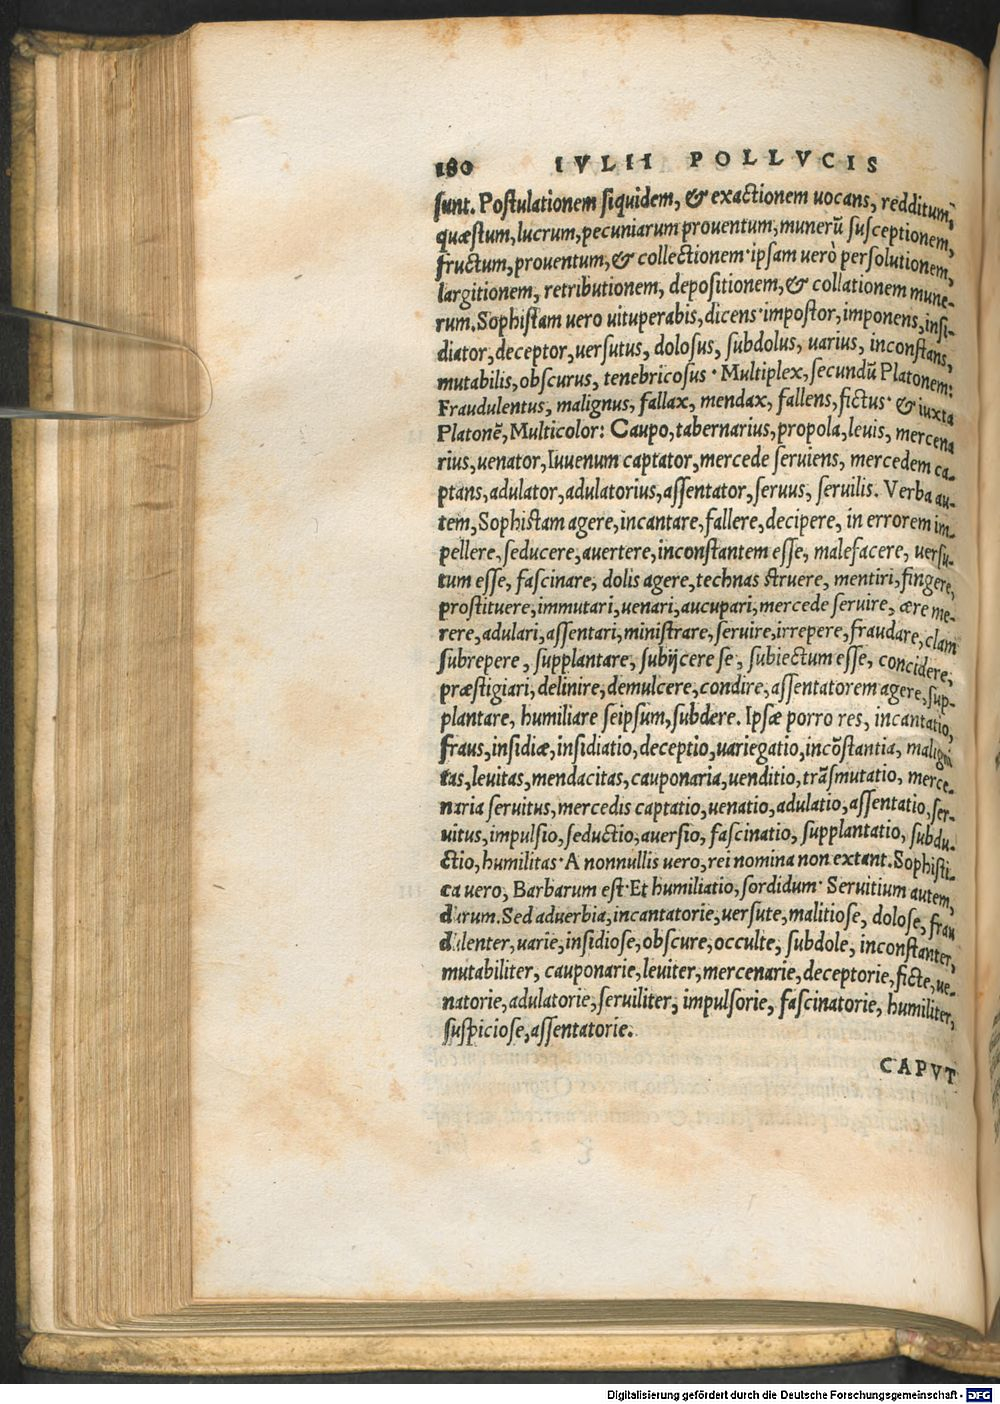 180 IVLII POLLVCIS
sunt. Postulationem siquidem, & exactionem uocans, redditum,
quæstum, lucrum, pecuniarum prouentum, munerũ susceptionem,
fructum, prouentum, & collectionem· ipsam uerò persolutionem,
largitionem, retributionem, depositionem, & collationem mune-
rum. Sophistam uero uituperabis, dicens· impostor, imponens, insi-
diator, deceptor, uersutus, dolosus, subdolus, uarius, inconstans,
mutabilis, obscurus, tenebricosus · Multiplex, secundũ Platonem:
Fraudulentus, malignus, fallax, mendax, fallens, fictus· & iuxta
Platonẽ, Multicolor: Caupo, tabernarius, propola, leuis, mercena
rius, uenator, Iuuenum captator, mercede seruiens, mercedem ca-
ptans, adulator, adulatorius, assentator, seruus, seruilis. Verba au-
tem, Sophistam agere, incantare, fallere, decipere, in errorem im-
pellere, seducere, auertere, inconstantem esse, malefacere, uersu-
tum esse, fascinare, dolis agere, technas struere, mentiri, fingere,
prostituere, immutari, uenari, aucupari, mercede seruire, ære me-
rere, adulari, assentari, ministrare, seruire, irrepere, fraudare, clam
subrepere, supplantare, subijcere se, subiectum esse, concidere,
præstigiari, delinire, demulcere, condire, assentatorem agere, sup-
plantare, humiliare seipsum, subdere. Ipsæ porro res, incantatio,
fraus, insidiæ, insidiatio, deceptio, uariegatio, incõstantia, maligni
tas, leuitas, mendacitas, cauponaria, uenditio, trãsmutatio, merce-
naria seruitus, mercedis captatio, uenatio, adulatio, assentatio, ser-
uitus, impulsio, seductio, auersio, fascinatio, supplantatio, subdu-
ctio, humilitas· A nonnullis uero, rei nomina non extant. Sophisti-
ca uero, Barbarum est· Et humiliatio, sordidum· Seruitium autem,
durum. Sed aduerbia, incantatorie, uersute, malitiose, dolose, frau
dulenter, uarie, insidiose, obscure, occulte, subdole, inconstanter,
mutabiliter, cauponarie, leuiter, mercenarie, deceptorie, ficte, ue-
natorie, adulatorie, seruiliter, impulsorie, fascinatorie, humiliter,
suspiciose, assentatorie.
CAPVT
Digitalisierung gefördert durch die Deutsche Forschungsgemeinschaft - DFG